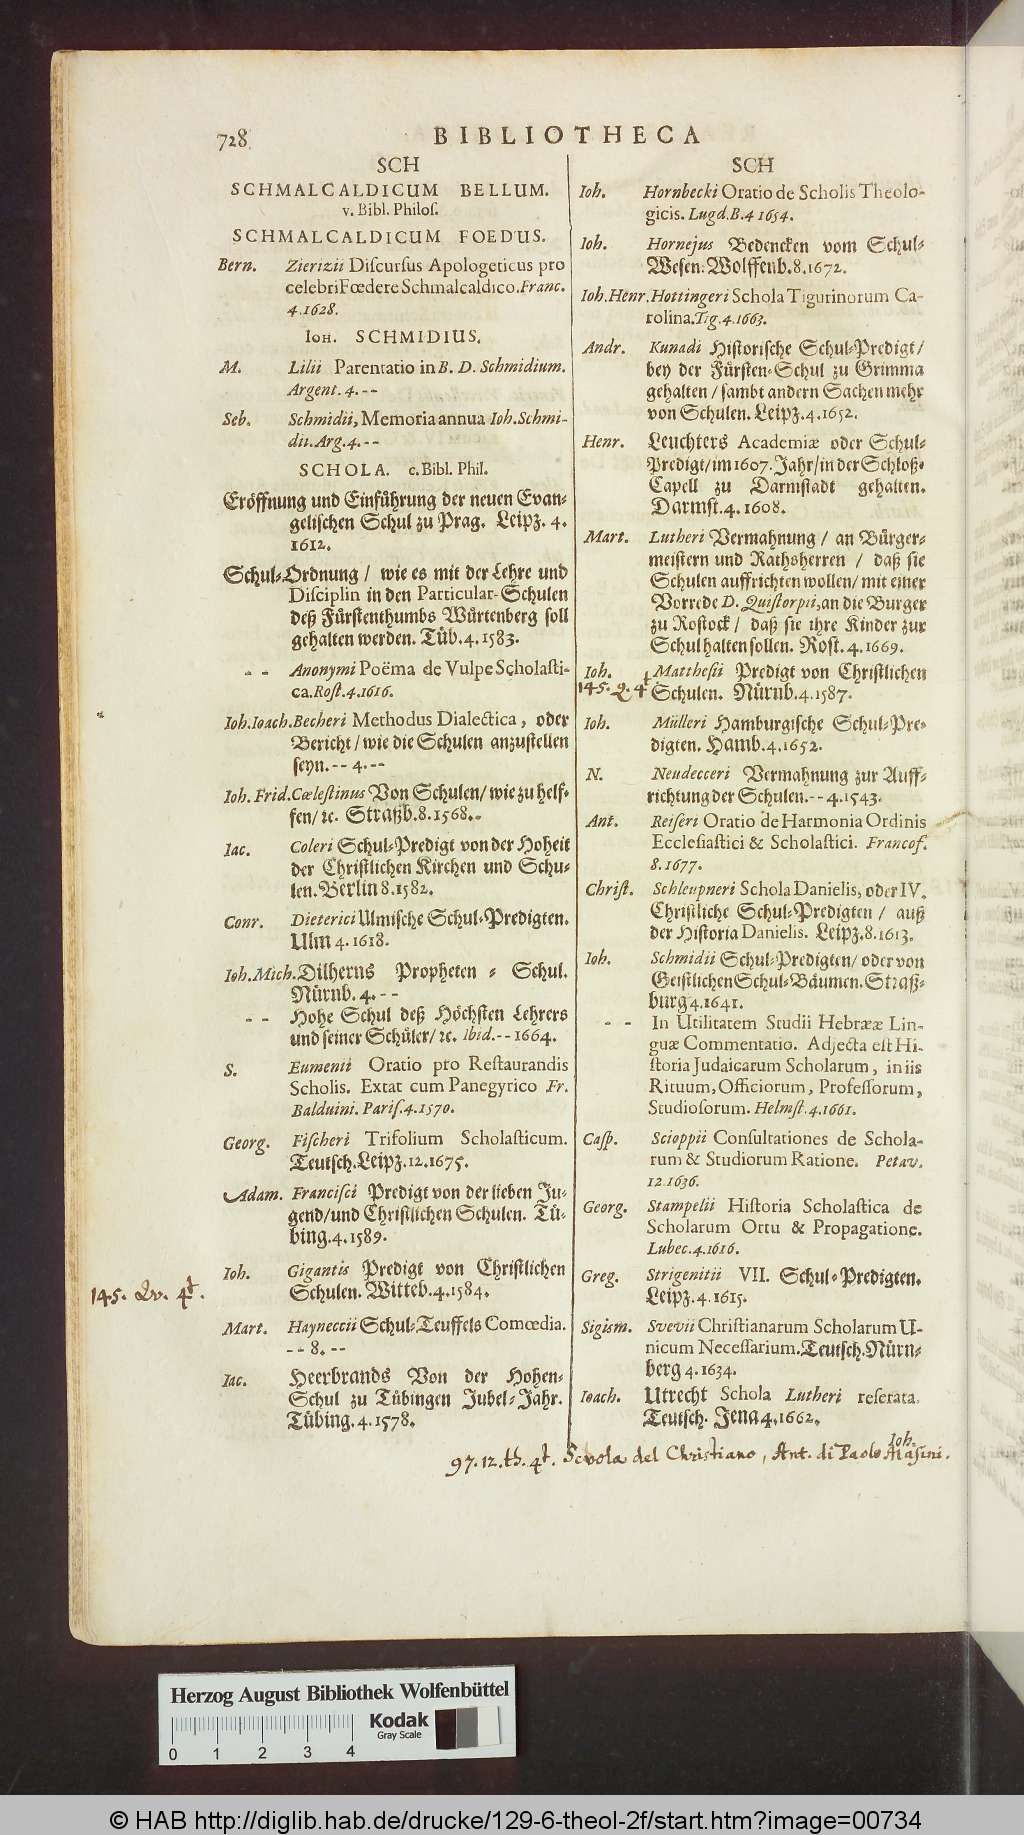 728
BIBLIOTHECA
SCH
SCHMALCALDICUM BELLUM.
v. Bibl. Philoſ.
SCHMALCALDICUM FOEDUS.
Bern. Zierizii Diſcurſus Apologeticus pro
celebri Fœdere Schmalcaldico. Franc.
4. 1628.
IOH. SCHMIDIUS.
M. Lilii Parentatio in B. D. Schmidium.
Argent. 4. --
Seb. Schmidii, Memoria annua Ioh. Schmi-
dii. Arg. 4. --
SCHOLA. c. Bibl. Phil.
Eröffnung und Einführung der neuen Evan-
geliſchen Schul zu Prag. Leipz. 4.
1612.
Schul-Ordnung / wie es mit der Lehre und
Diſciplin in den Particular-Schulen
deß Fürſtenthumbs Würtenberg ſoll
gehalten werden. Tüb. 4. 1583.
- - Anonymi Poëma de Vulpe Scholaſti-
ca. Roſt. 4. 1616.
Ioh. Ioach. Becheri Methodus Dialectica, oder
Bericht / wie die Schulen anzuſtellen
ſeyn. -- 4. --
Ioh. Frid. Cœleſtinus Von Schulen / wie zu helf-
fen / ꝛc. Straßb. 8. 1568. -
Iac. Coleri Schul-Predigt von der Hoheit
der Chriſtlichen Kirchen und Schu-
len. Berlin 8. 1582.
Conr. Dieterici Ulmiſche Schul-Predigten.
Ulm 4. 1618.
Ioh. Mich. Dilherns Propheten-Schul.
Nürnb. 4. --
- - Hohe Schul deß Höchſten Lehrers
und ſeiner Schüler / ꝛc. Ibid. -- 1664.
S. Eumenii Oratio pro Reſtaurandis
Scholis. Extat cum Panegyrico Fr.
Balduini. Pariſ. 4. 1570.
Georg. Fiſcheri Trifolium Scholaſticum.
Teutſch. Leipz. 12. 1675.
Adam. Franciſci Predigt von der lieben Ju-
gend / und Chriſtlichen Schulen. Tü-
bing. 4. 1589.
Ioh. Gigantis Predigt von Chriſtlichen
Schulen. Witteb. 4. 1584.
145. Qv. 4t.
Mart. Hayneccii Schul-Teuffels Comœdia.
-- 8. --
Iac. Heerbrands Von der Hohen-
Schul zu Tübingen Jubel-Jahr.
Tübing. 4. 1578.
SCH
Ioh. Hornbecki Oratio de Scholis Theolo-
gicis. Lugd. B. 4 1654.
Ioh. Hornejus Bedencken vom Schul-
Weſen. Wolffenb. 8. 1672.
Ioh. Henr. Hottingeri Schola Tigurinorum Ca-
rolina. Tig. 4. 1663.
Andr. Kunadi Hiſtoriſche Schul-Predigt /
bey der Fürſten-Schul zu Grimma
gehalten / ſambt andern Sachen mehr
von Schulen. Leipz. 4. 1652.
Henr. Leuchters Academiæ oder Schul-
Predigt / im 1607. Jahr / in der Schloß-
Capell zu Darmſtadt gehalten.
Darmſt. 4. 1608.
Mart. Lutheri Vermahnung / an Bürger-
meiſtern und Rathsherren / daß ſie
Schulen auffrichten wollen / mit einer
Vorrede D. Quiſtorpii, an die Burger
zu Roſtock / daß ſie ihre Kinder zur
Schul halten ſollen. Roſt. 4. 1669.
Ioh. Mattheſii Predigt von Chriſtlichen
145. Q. 4t Schulen. Nürnb. 4. 1587.
Ioh. Mülleri Hamburgiſche Schul-Pre-
digten. Hamb. 4. 1652.
N. Neudecceri Vermahnung zur Auff-
richtung der Schulen. -- 4. 1543.
Ant. Reiſeri Oratio de Harmonia Ordinis
Eccleſiaſtici & Scholaſtici. Francof.
8. 1677.
Chriſt. Schleupneri Schola Danielis, oder IV.
Chriſtliche Schul-Predigten / auß
der Hiſtoria Danielis. Leipz. 8. 1613.
Ioh. Schmidii Schul-Predigten / oder von
Geiſtlichen Schul-Bäumen. Straß-
burg 4. 1641.
- - In Utilitatem Studii Hebrææ Lin-
guæ Commentatio. Adjecta eſt Hi-
ſtoria Judaicarum Scholarum, in iis
Rituum, Officiorum, Profeſſorum,
Studioſorum. Helmſt. 4. 1661.
Caſp. Scioppii Conſultationes de Schola-
rum & Studiorum Ratione. Petav.
12. 1636.
Georg. Stampelii Hiſtoria Scholaſtica de
Scholarum Ortu & Propagatione.
Lubec. 4. 1616.
Greg. Strigenitii VII. Schul-Predigten.
Leipz. 4. 1615.
Sigism. Svevii Chriſtianarum Scholarum U-
nicum Neceſſarium. Teutſch. Nürn-
berg 4. 1634.
Ioach. Utrecht Schola Lutheri reſerata.
Teutſch. Jena 4. 1662.
Ioh.
97. 12. th. 4t. Scvola del Christiano, Ant. di Paolo Masini.
Herzog August Bibliothek Wolfenbüttel
Kodak
Gray Scale
0 1 2 3 4
© HAB http://diglib.hab.de/drucke/129-6-theol-2f/start.htm?image=00734